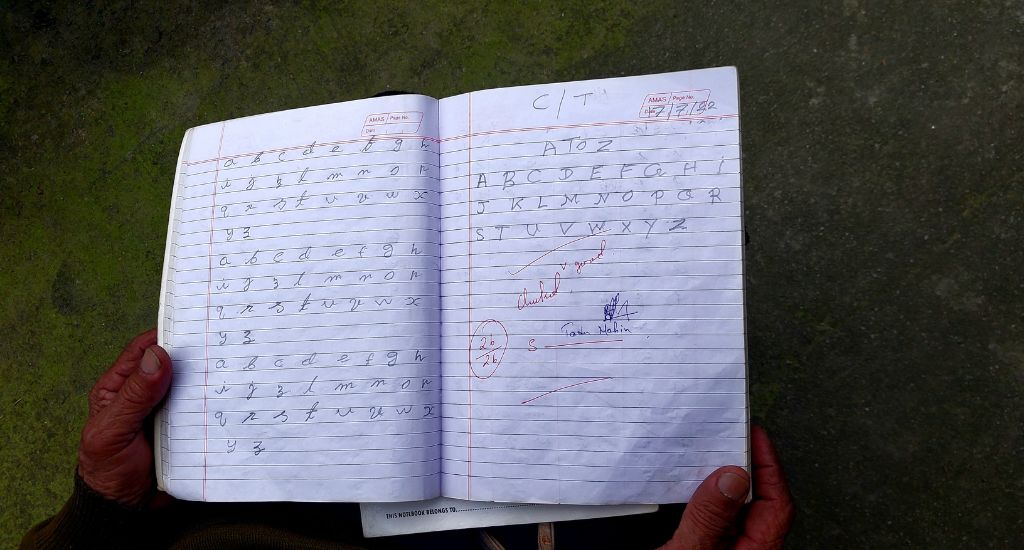 AMAS Page No.
Date
a b c d e f g h
i j z l m n o p
q r s t u v w x
y z
a b c d e f g h
i j z l m n o p
q r s t u v w x
y z
a b c d e f g h
i j z l m n o p
q r s t u v w x
y z
C/T
AMAS Page No.
Date 7/7/22
A TO Z
A B C D E F G H I
J K L M N O P Q R
S T U V W X Y Z
good
Checked
26/26
S
THIS NOTEBOOK BELONGS TO